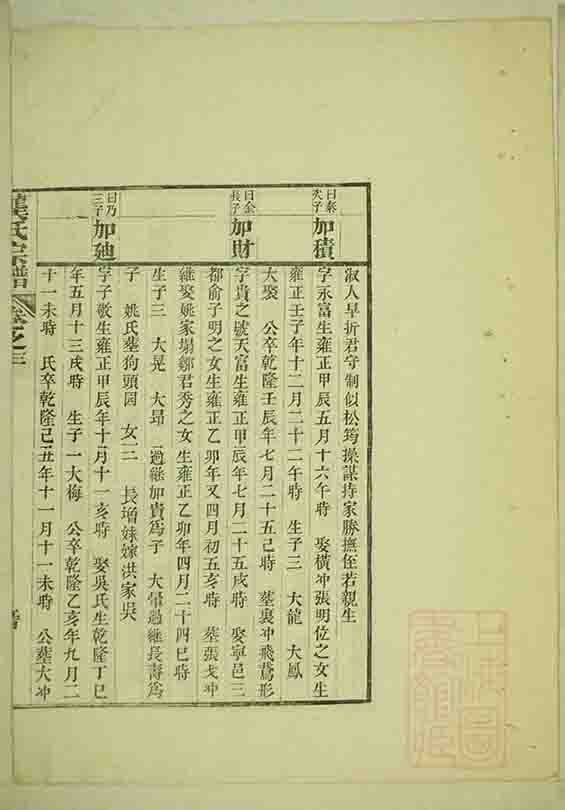 淑人早折君守制似松筠操謀持家勝撫侄若親生
曰泰次子
加積
字永富生雍正甲辰五月十六午時 娶橫冲張明位之女生
雍正壬子年十二月二十二午時 生子三 大龍 大鳳
大㷟 公卒乾隆壬辰年七月二十五己時 墓裏冲飛鵞形
曰金長子
加財
字貴之號天富生雍正甲辰年七月二十五戌時 娶寧邑三
都俞子明之女生雍正乙卯年又四月初五亥時 墓張戈冲
継娶姚家塌鄒君秀之女生雍正乙卯年四月二十四巳時
生子三 大晃 大昂 一過継加貴為子 大暈過継長壽為
子 姚氏墓狗頭园 女二 長增妹嫁洪家吳
曰乃三子
加廸
字子敬生雍正甲辰年十二月十一亥時 娶吳氏生乾隆丁巳
年五月十三戌時 生子一大梅 公卒乾隆乙亥年九月二
十一未時 氏卒乾隆己丑年十一月十一未時 公墓大冲
氏宗譜 卷之三